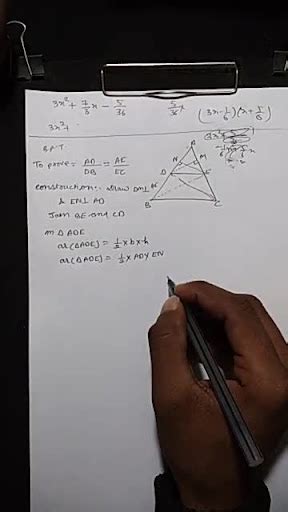 3x² + 7/3 x - 5/36
5/36 x
(3x - 1/6) (x + 5/6)
3x² +
BPT
To prove = AD/DB = AE/EC
construction:- draw DM⊥
& EN⊥ AD
Join BE and CD
A
N M
D E
B C
In △ ADE
ar(△ADE) = 1/2 × b × h
ar(△ADE) = 1/2 × AD × EN